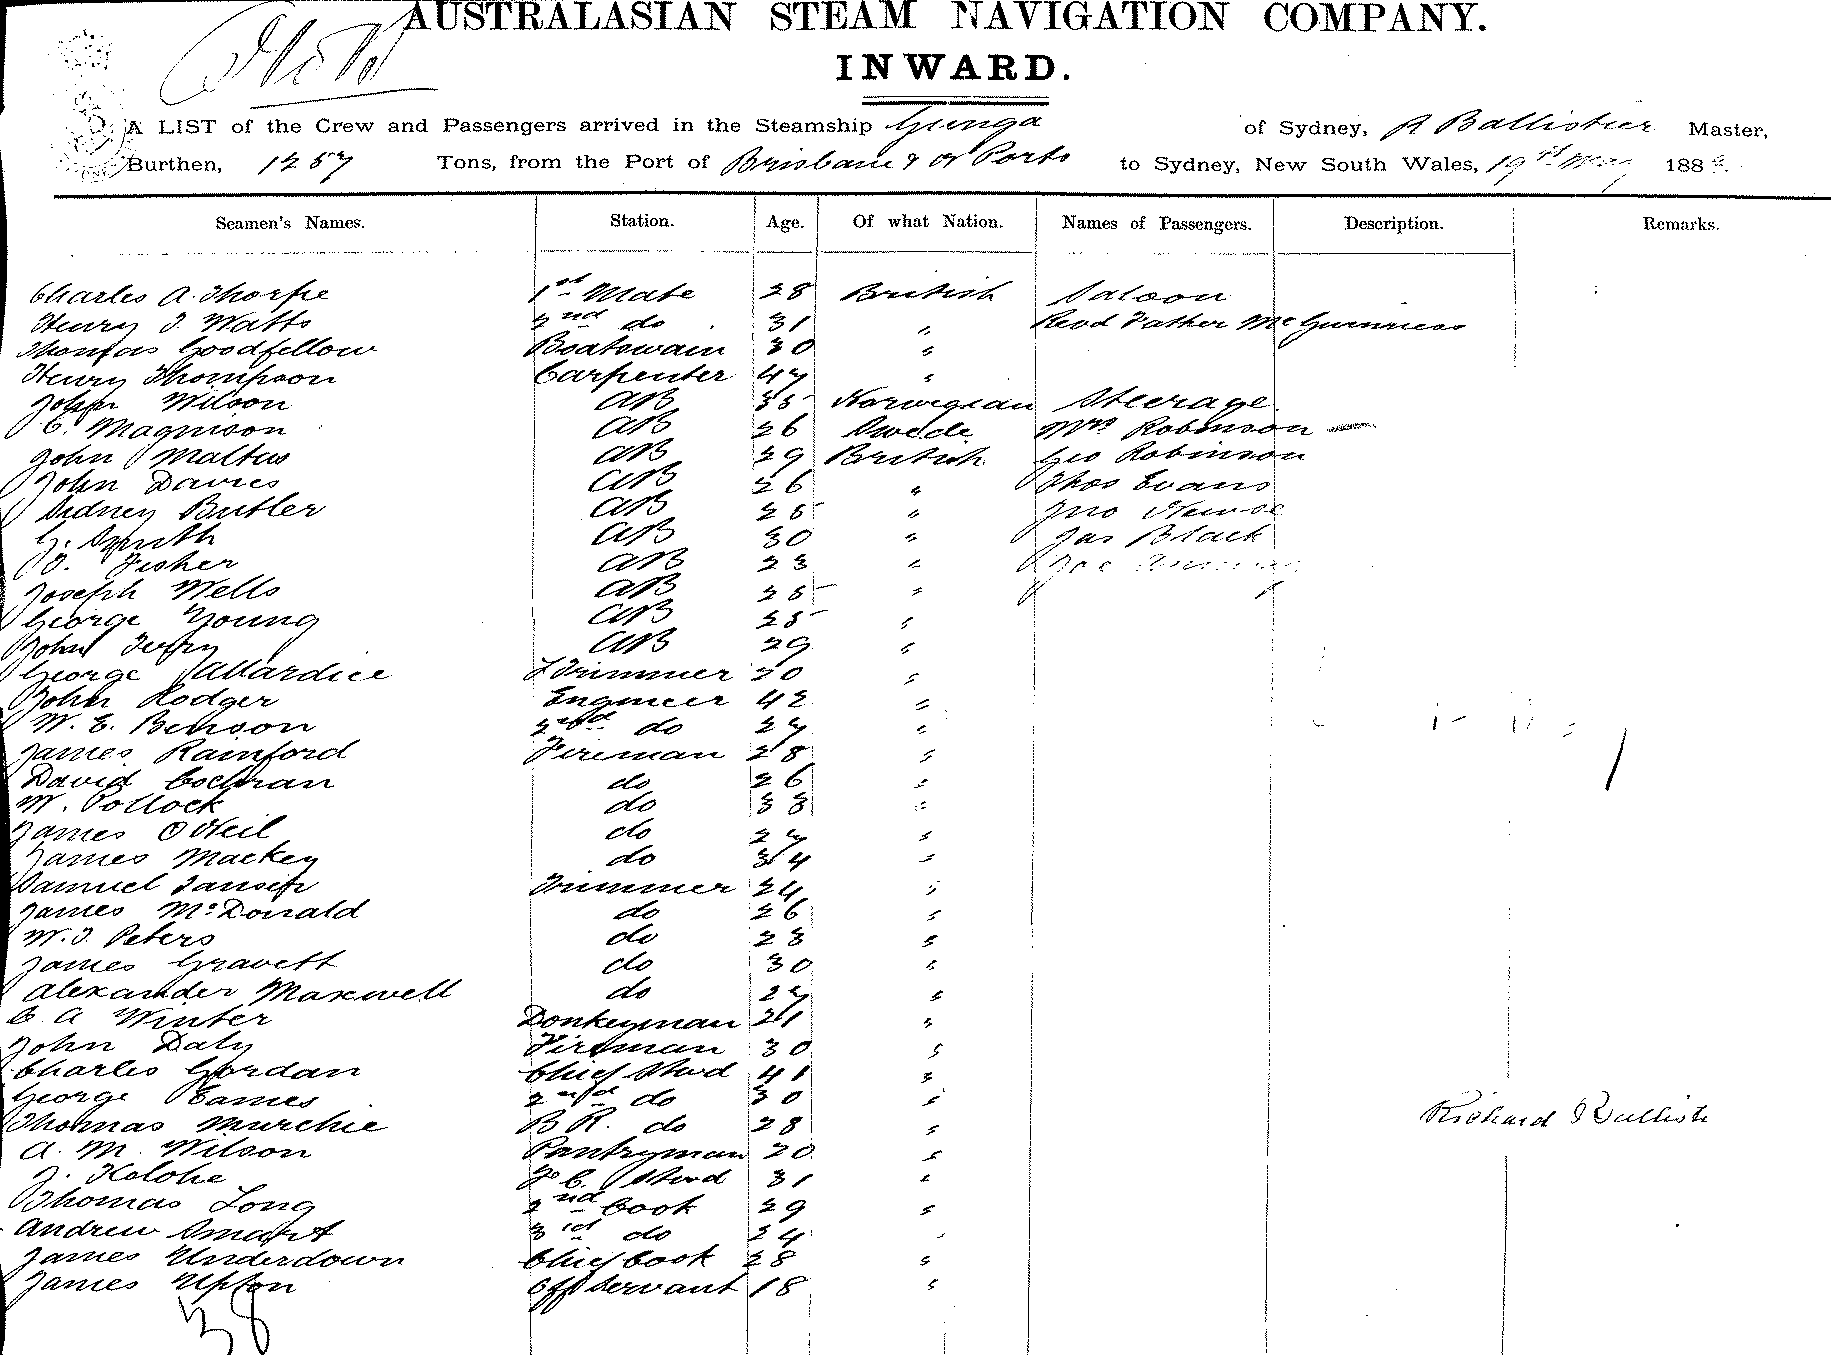 AUSTRALASIAN STEAM NAVIGATION COMPANY.
INWARD.
A LIST of the Crew and Passengers arrived in the Steamship Gunga of Sydney, R Ballistier Master,
Burthen, 1257 Tons, from the Port of Brisbane & or Ports to Sydney, New South Wales, 19th May 188
Seamen's Names. Station. Age. Of what Nation. Names of Passengers. Description. Remarks.
Charles A. Thorpe 1st Mate 28 British Saloon
Henry J. Watts 2nd do 31 " Revd Father McGuinness
Thomas Goodfellow Boatswain 30 "
Henry Thompson Carpenter 47 "
John Wilson AB 35 Norwegian Steerage
C. Magnison AB 26 Swede Mrs Robinson
John Maltus AB 29 British Geo Robinson
John Davies AB 26 " Thos Evans
Sidney Butler AB 25 " Jno
Smith AB 30 " Jas Black
Fisher AB 23 " Joe
Joseph Wells AB 25 "
George Young AB 25 "
John AB 29 "
George Allardice Trimmer 20 "
John Rodger Engineer 42 "
W. E. Benson 2nd do 27 "
James Rainford Fireman 28 "
David Cochran do 26 "
W. Pollock do 33 "
James O'Neil do 27 "
James Mackey do 34 "
Samuel Trimmer 24 "
James McDonald do 26 "
W. J. Peters do 23 "
James Gravett do 30 "
Alexander Maxwell do 27 "
C. A Winter Donkeyman 21 "
John Daly Fireman 30 "
Charles Gordan Chief Stwd 41 "
George Eames 2nd do 30 "
Thomas Murchie B R. do 28 " Richard Ballisti
A. M. Wilson Pantryman 20 "
J. Kelohe F. C. Stwd 31 "
Thomas Long 2nd Cook 29 "
Andrew Smart 3rd do 24 "
James Underdown Chief Cook 28 "
James Upton Off Servant 18 "
38